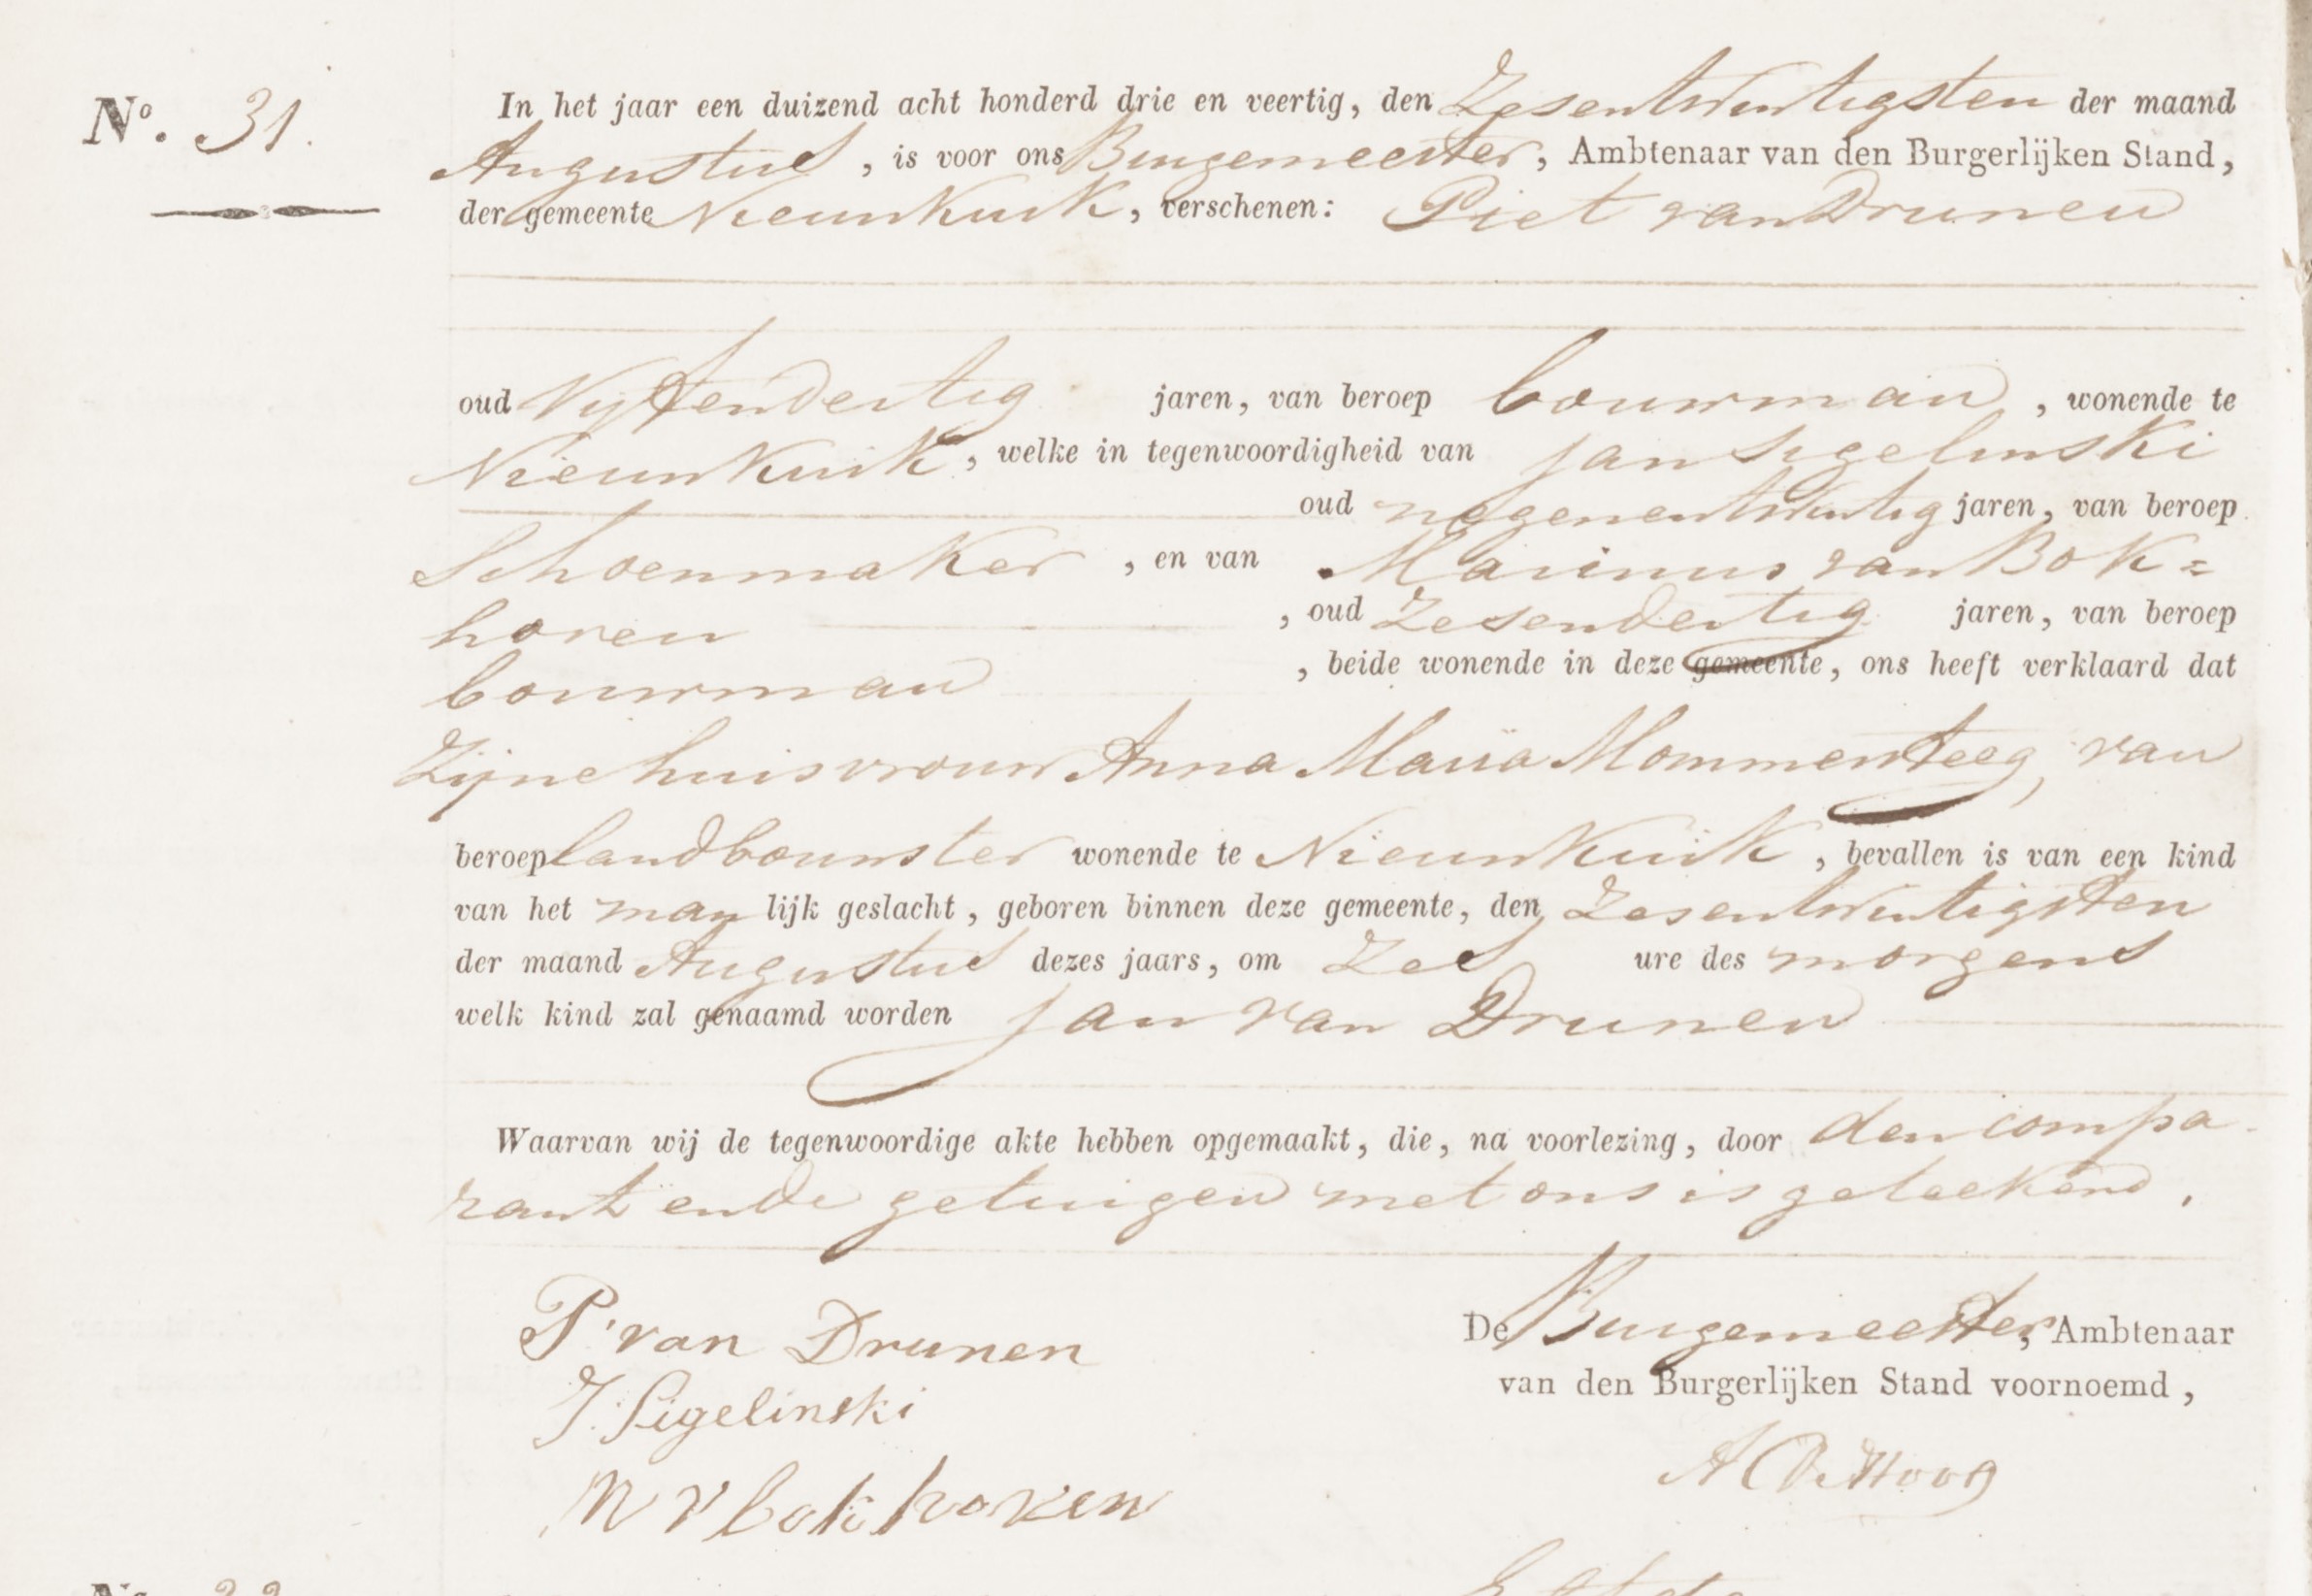 No. 31.
In het jaar een duizend acht honderd drie en veertig, den Zesentwintigsten der maand
Augustus, is voor ons Burgemeester, Ambtenaar van den Burgerlijken Stand,
der gemeente Nieuwkuik, verschenen: Piet van Drunen
oud Vijfendertig jaren, van beroep bouwman, wonende te
Nieuwkuik, welke in tegenwoordigheid van Jan Sigelinski
oud negenentwintig jaren, van beroep
Schoenmaker, en van Marinus van Bok=
hoven, oud Zesendertig jaren, van beroep
bouwman, beide wonende in deze gemeente, ons heeft verklaard dat
Zijne huisvrouw Anna Maria Mommersteeg, van
beroep landbouwster wonende te Nieuwkuik, bevallen is van een kind
van het man lijk geslacht, geboren binnen deze gemeente, den Zesentwintigsten
der maand Augustus dezes jaars, om Zes ure des morgens
welk kind zal genaamd worden Jan van Drunen
Waarvan wij de tegenwoordige akte hebben opgemaakt, die, na voorlezing, door den compa-
rant en de getuigen met ons is geteekend.
P. van Drunen
De Burgemeester, Ambtenaar
J. Sigelinski
van den Burgerlijken Stand voornoemd,
M v bokhoven